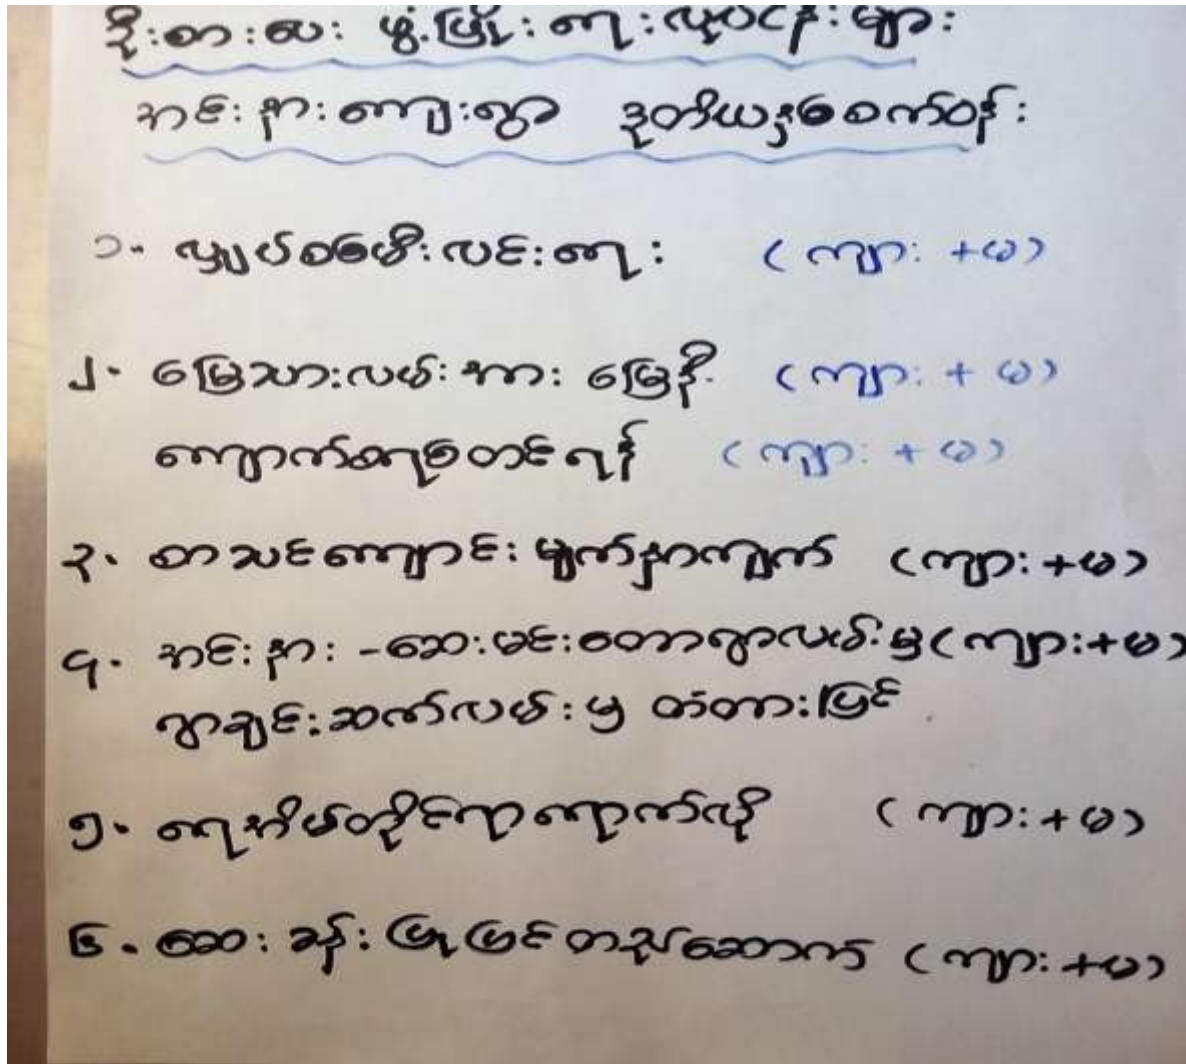 ဦးစားပေး ဖွံ့ဖြိုးရေးလုပ်ငန်းများ
အင်းနားကျေးရွာ ဒုတိယနှစ်စက်ဝန်း
၁- လျှပ်စစ်မီးလင်းရေး (ကျား +မ)
၂- မြေသားလမ်းအား မြေနီ (ကျား + မ)
ကျောက်စရစ်တင်ရန် (ကျား + မ)
၃- စာသင်ကျောင်း မျက်နှာကျက် (ကျား +မ)
၄- အင်းနား -ဆေးမင်းတောရွာလမ်းမှ (ကျား+မ)
ရွာချင်းဆက်လမ်းမှ တံတားပြင်
၅- ရေအိမ်တိုင်ရာရောက်လို (ကျား+မ)
၆- ဆေးခန်းပြုပြင်တည်ဆောက် (ကျား +မ)